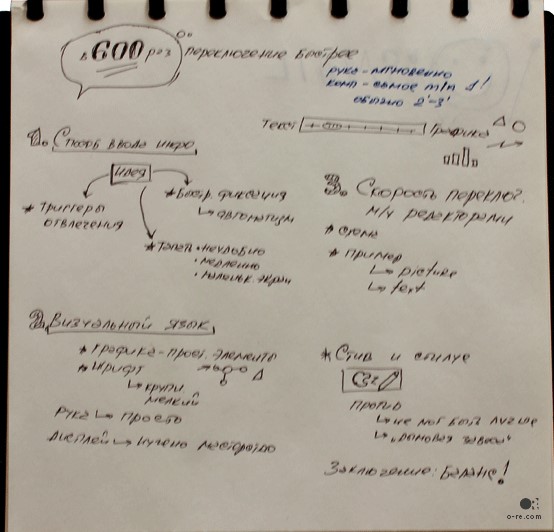 в 600 раз переключение быстрее
рука - мгновенно
комп - самое min 1'!
обычно 2'-3'
Текст Графика
1. Способ ввода инфо
идея
* Триггеры
отвлечения
* Быстр. фиксация
автоматизм
* Тапать • неудобно
• медленно
• маленьк. экран
3. Скорость переключ.
м/ч редакторами
* схема
* пример
picture
text
2. Визуальный язык
* графика - прост. элементы
* шрифт
крупн
мелкий
Рука просто
Дисплей нужено мастерство
* Стив и стилус
против
не мог быть лучше
Заключение: Баланс!
o-re.com